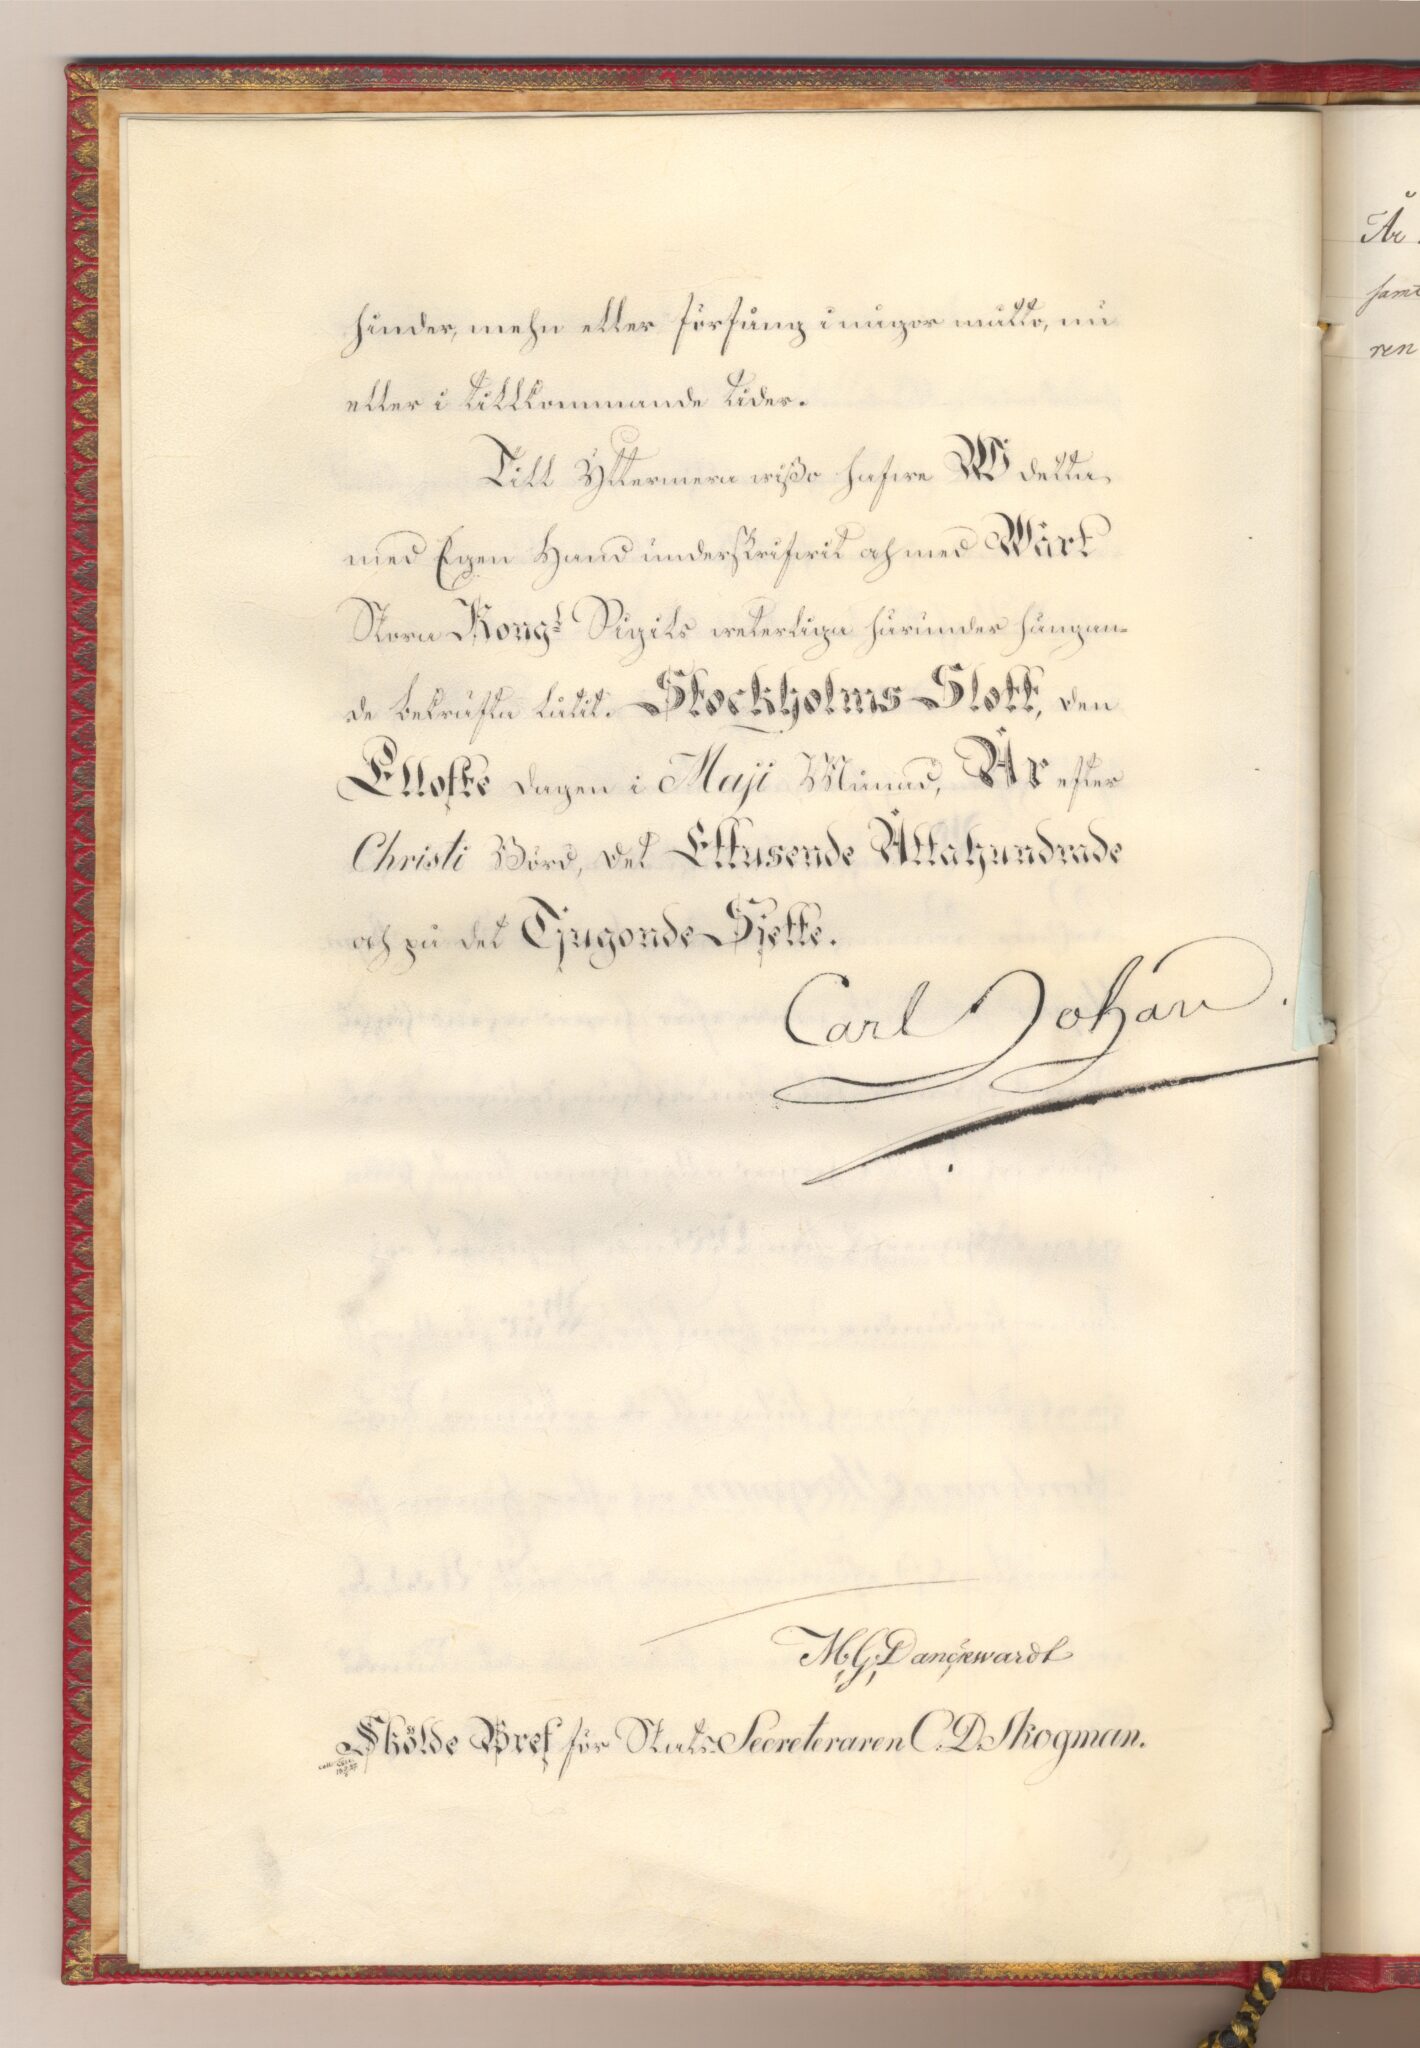 hinder, mehn eller förfång i någor måtto, nu
eller i tillkommande tider.
Till Yttermera wißo hafve Wi detta
med Egen Hand underskrifvit och med Wårt
Stora Kongl Sigills wetterliga härunder hängan-
de bekräfta låtit. Stockholms Slott, den
Ellofte dagen i Maji Månad, År efter
Christi Börd, det Ettusende Åttahundrade
och på det Tjugonde Sjette.
Carl Johan
M. G. Danckwardt
Skölde Bref för Stats Secreteraren C. D. Skogman.
År
samt
ren